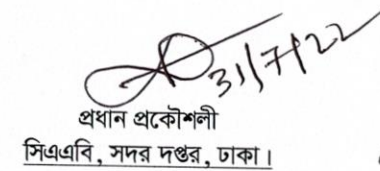 31/7/22
প্রধান প্রকৌশলী
সিএএবি, সদর দপ্তর, ঢাকা।